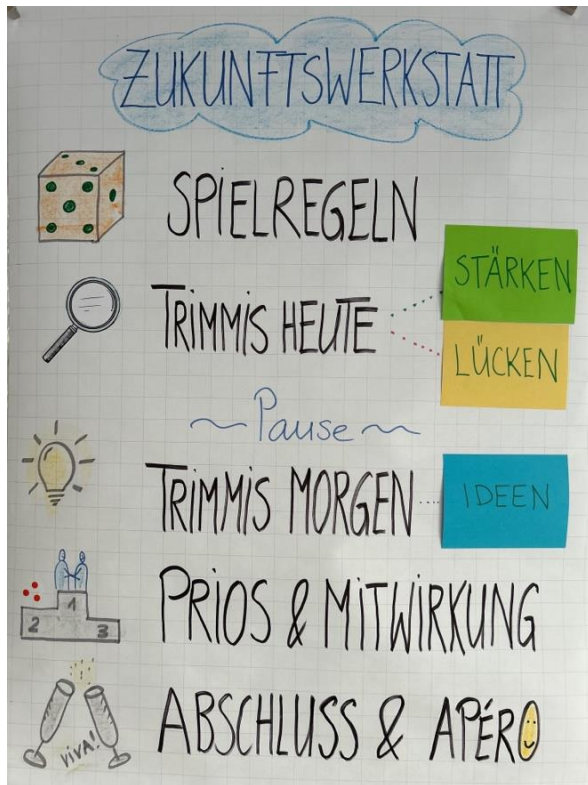 ZUKUNFTSWERKSTATT
SPIELREGELN
STÄRKEN
TRIMMIS HEUTE
LÜCKEN
~ Pause ~
TRIMMIS MORGEN
IDEEN
1
2
3
PRIOS & MITWIRKUNG
VIVA!
ABSCHLUSS & APÉRO